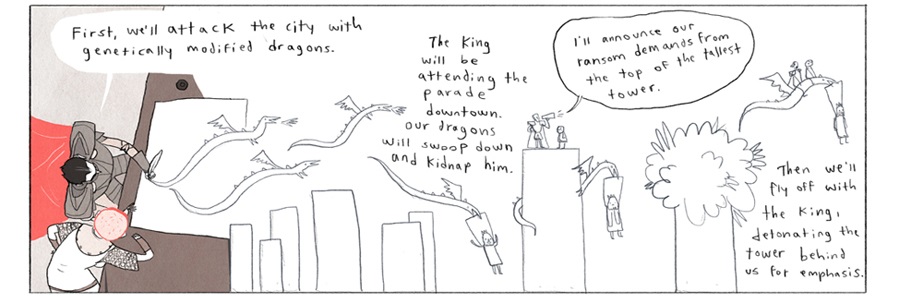 First, we'll attack the city with
genetically modified dragons.
The King
will be
attending the
parade
downtown.
our dragons
will swoop down
and kidnap him.
I'll announce our
ransom demands from
the top of the tallest
tower.
Then we'll
fly off with
the King,
detonating the
tower behind
us for emphasis.